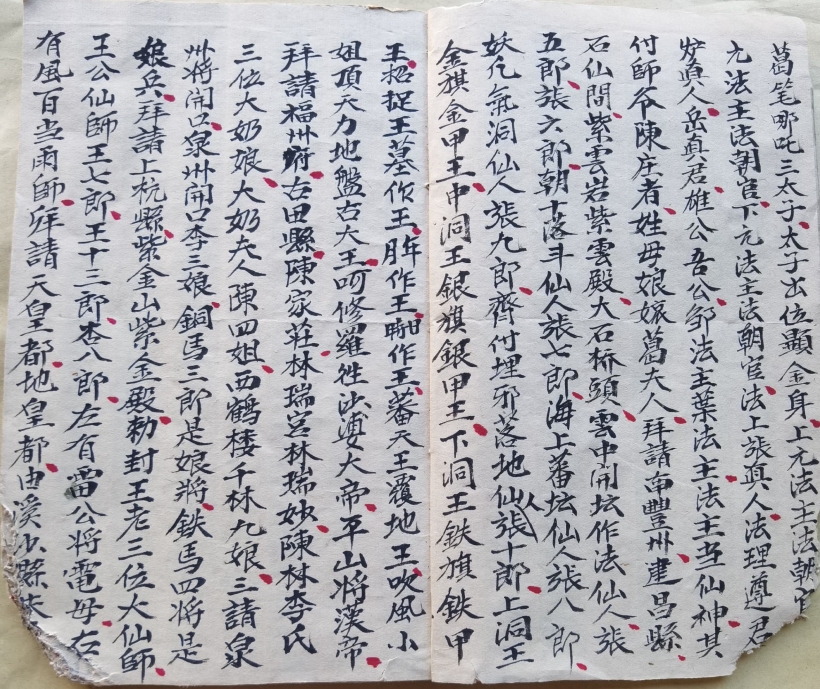 葛笔哪吒三太子太子出位顯金身上元法主法朝官
九法主法朝官下元法主法朝官法上張真人法理遵君
炉真人岳真君雄公吾公邹法主葉法主法主当仙神其
付師爷陳庄者姓母娘娘葛夫人拜請南豐州建昌縣
石仙間紫雲岩紫雲殿大石桥頭雲中開坛作法仙人張
五郎張六郎朝十落斗仙人張七郎海上蕃坛仙人張八郎
妖凢氣洞仙人張九郎齊付埋邪落地仙人張十郎上洞王
金旗金甲王中洞王銀旗銀甲王下洞王鉄旗鉄甲
王招捉王墓作王年月作王日時作王蕃天王覆地王吹風小
姐頂天力地盤古大王呵修羅徃沙婆大帝平山将漢帝
拜請福州府古田縣陳家荘林瑞宮林瑞妙陳林李氏
三位大奶娘大奶夫人陳四姐西鶴楼千林九娘三請泉
州将開口泉州開口李三娘銅馬三郎是娘將鉄馬四将是
娘兵拜請上杭縣紫金山紫金殿勅封王老三位大仙師
王公仙師王七郎王十三郎李八郎左有雷公将電母左
有風百当雨師拜請天皇都地皇都由溪沙縣